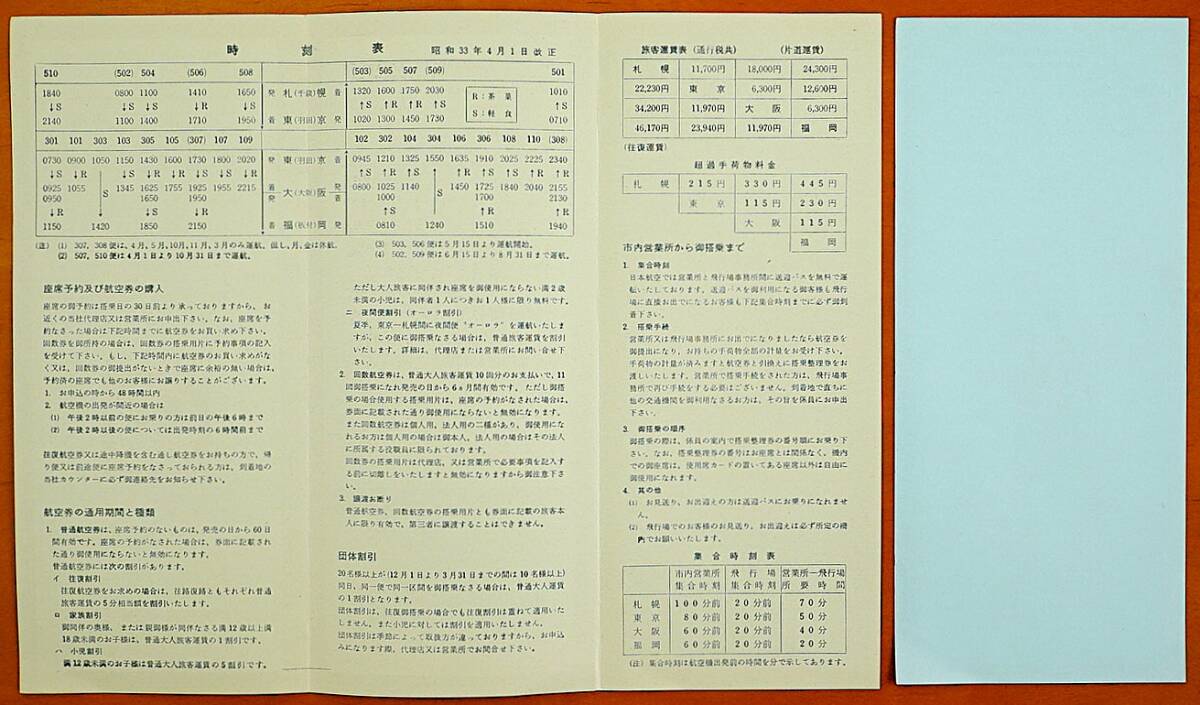 時刻表 昭和33年4月1日改正
510 (502) 504 (506) 508 (503) 505 507 (509) 501
1840 0800 1100 1410 1650 発 札(千歳)幌 着 1320 1600 1750 2030 1010
↓S ↓S ↓S ↓R ↓S ↑S ↑R ↑R ↑S ↑S
2140 1100 1400 1710 1950 着 東(羽田)京 発 1020 1300 1450 1730 0710
R:茶菓
S:軽食
301 101 303 103 305 105 (307) 107 109 102 302 104 304 106 306 108 110 (308)
0730 0900 1050 1150 1430 1600 1730 1800 2020 発 東(羽田)京 着 0945 1210 1325 1550 1635 1910 2025 2225 2340
0925 1055 1345 1625 1755 1925 1955 2215 着 大(大阪)阪 発 0800 1025 1140 1450 1725 1840 2040 2155
0950 1650 1950 発 着 1000 1700 2130
1150 1420 1850 2150 着 福(板付)岡 発 0810 1240 1510 1940
(注) (1) 307, 308便は、4月、5月、10月、11月、3月のみ運航。但し、月、金は休航。
(2) 507, 510便は4月1日より10月31日まで運航。
(3) 503, 506便は5月15日より運航開始。
(4) 502, 509便は6月15日より8月31日まで運航。
座席予約及び航空券の購入
座席の御予約は搭乗日の30日前より承っておりますから、お
近くの当社代理店又は営業所にお申出下さい。なお、座席を予
約なさった場合は下記時間までに航空券をお買い求め下さい。
回数券を御所持の場合は、回数券の搭乗用片に予約事項の記入
を受けて下さい。もし、下記時間内に航空券のお買い求めがな
く又は、回数券の御提出がないときで座席に余裕の無い場合は、
予約済の座席でも他のお客様にお譲りすることがございます。
1. お申込の時から48時間以内
2. 航空機の出発が間近の場合は
(1) 午後2時以前の便にお乗りの方は前日の午後6時まで
(2) 午後2時以後の便については出発時刻の6時間前まで
往復航空券又は途中降機を含む通し航空券をお持ちの方で、帰
り便又は前途便に座席予約をなさっておられる方は、到着地の
当社カウンターに必ず御連絡先をお知らせ下さい。
航空券の通用期間と種類
1. 普通航空券は、座席予約のないものは、発売の日から60日
間有効です。座席の予約がなされた場合は、券面に記載され
た通り御使用にならないと無効になります。
普通航空券には次の割引があります。
イ 往復割引
往復航空券をお求めの場合は、往路復路ともそれぞれ普通
旅客運賃の5分相当額を割引いたします。
ロ 家族割引
御同伴の奥様、または親御様が同伴なさる満12歳以上満
18歳未満のお子様は、普通大人旅客運賃の1割引です。
ハ 小児割引
満12歳未満のお子様は普通大人旅客運賃の5割引です。
ただし大人旅客に同伴され座席を御使用にならない満2歳
未満の小児は、同伴者1人につきお1人様に限り無料です。
ニ 夜間便割引(オーロラ割引)
夏季、東京―札幌間に夜間便“オーロラ”を運航いたしま
すが、この便に御搭乗なさる場合は、普通旅客運賃を割引
いたします。詳細は、代理店または営業所にお問い合せ下
さい。
2. 回数航空券は、普通大人旅客運賃10回分のお支払いで、11
回御搭乗になれ発売の日から6ヵ月間有効です。ただし御搭
乗の場合使用する搭乗用片は、座席の予約がなされた場合は、
券面に記載された通り御使用にならないと無効になります。
また回数航空券は個人用、法人用の二種があり、御使用にな
れるお方は個人用の場合は御本人、法人用の場合はその法人
に所属する役職員に限られております。
回数券の搭乗用片は代理店、又は営業所で必要事項を記入す
る前に切離しをいたしますと無効になりますから御注意下さ
い。
3. 譲渡お断り
普通航空券、回数航空券の搭乗用片とも券面に記載の旅客本
人に限り有効で、第三者に譲渡することはできません。
団体割引
20名様以上が(12月1日より3月31日までの間は10名様以上)
同日、同一便で同一区間を御搭乗なさる場合は、普通大人運賃
の1割引となります。
団体割引は、往復御搭乗の場合でも往復割引は重ねて適用いた
しません、また小児に対しては割引を適用いたしません。
団体割引は季節によって取扱方が違っておりますから、お申込
みになります際、代理店又は営業所でお問合せ下さい。
旅客運賃表(通行税共) (片道運賃)
札幌 11,700円 18,000円 24,300円
22,230円 東京 6,300円 12,600円
34,200円 11,970円 大阪 6,300円
46,170円 23,940円 11,970円 福岡
(往復運賃)
超過手荷物料金
札幌 215円 330円 445円
東京 115円 230円
大阪 115円
福岡
市内営業所から御搭乗まで
1. 集合時刻
日本航空では営業所と飛行場事務所間に送迎バスを無料で運
転いたしております。送迎バスを御利用になる御客様も飛行
場に直接お出でになるお客様も下記集合時刻までに必ず御到
着下さい。
2. 搭乗手続
営業所又は飛行場事務所にお出でになりましたなら航空券を
御提出になり、お持ちの手荷物全部の計量をお受け下さい。
手荷物の計量が済みますと航空券と引換えに搭乗整理券をお
渡しいたします。営業所で搭乗手続をされた方は、飛行場事
務所で再び手続をする必要はございません。到着地で直ちに
他の交通機関を御利用なさるお方は、その旨を係員にお申出
下さい。
3. 御搭乗の順序
御搭乗の際は、係員の案内で搭乗整理券の番号順にお乗り下
さい。なお、搭乗整理券の番号はお座席とは関係なく、機内
での御座席は、使用席カードの置いてある座席以外は自由に
御使用になれます。
4. 其の他
(1) お見送り、お出迎えの方は送迎バスにお乗りになれませ
ん。
(2) 飛行場でのお客様のお見送り、お出迎えは必ず所定の柵
内でお願いいたします。
集合時刻表
市内営業所集合時刻 飛行場集合時刻 営業所―飛行場所要時間
札幌 100分前 20分前 70分
東京 80分前 20分前 50分
大阪 60分前 20分前 40分
福岡 60分前 20分前 20分
(注) 集合時刻は航空機出発前の時間を分で示してあります。